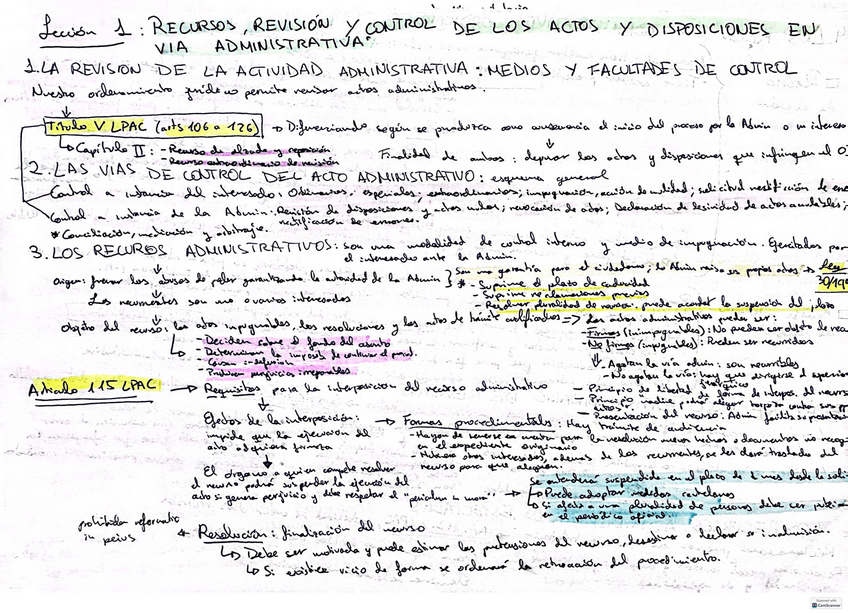 Lección 1: RECURSOS, REVISIÓN Y CONTROL DE LOS ACTOS Y DISPOSICIONES EN
VIA ADMINISTRATIVA.
1. LA REVISIÓN DE LA ACTIVIDAD ADMINISTRATIVA: MEDIOS Y FACULTADES DE CONTROL
Nuestro ordenamiento jurídico permite revisar actos administrativos.
Título V LPAC (arts 106 a 126) → Diferenciando según se produzca como consecuencia el inicio del proceso por la Admin o su interesa
↳ Capítulo II: - Recurso de alzada y reposición
- Recurso extraordinario de revisión
Finalidad de ambos: depurar los actos y disposiciones que infringen el O
2. LAS VIAS DE CONTROL DEL ACTO ADMINISTRATIVO: esquema general
Control a instancia del interesado: Ordinarios, especiales, extraordinarios; impugnación, acción de nulidad; solicitud rectificación de erro
Control a instancia de la Admin: Revisión de disposiciones y actos nulos; revocación de actos; Declaración de lesividad de actos anulables;
rectificación de errores.
* Conciliación, mediación y arbitraje.
3. LOS RECURSOS ADMINISTRATIVOS: son una modalidad de control interno y medio de impugnación. Ejercitados por
el interesado ante la Admin.
Origen: frenar los abusos de poder garantizando la autoridad de la Admin } Son una garantía para el ciudadano; la Admin revisa sus propios actos → Ley
30/199
* - Suprime el plazo de caducidad
- Suprime reclamaciones previas
- Resolver pluralidad de recursos: puede acordar la suspensión del plazo
Los recurrentes son uno o varios interesados
Objeto del recurso: los actos impugnables, las resoluciones y los actos de trámite cualificados => Los actos administrativos pueden ser:
- Deciden sobre el fondo del asunto
- Determinan la imposib. de continuar el proced.
- Causan indefensión
- Producen perjuicios irreparables
- Firmes (inimpugnables): No pueden ser objeto de recu
- No firmes (impugnables): Pueden ser recurridos
- Agotan la vía admin: son recurribles
- No agotan la vía: hay que dirigirse al superior
jerárquico
Artículo 115 LPAC → Requisitos para la interposición del recurso administrativo
- Principio de libertad de forma de interpos. del recurso
- Principio nadie podrá alegar torpeza contra sus pp
actos
- Presentación del recurso: Admin facilita su presentac
Efectos de la interposición:
impide que la ejecución del
acto adquiera firmeza
→ Formas procedimentales: Hay
trámite de audiencia
- Hayan de tenerse en cuenta para la resolución nuevos hechos o documentos no recog
en el expediente originario
- Hubiera otros interesados, además de los recurrentes, se les dará traslado del
recurso para que aleguen.
El órgano a quien compete resolver
el recurso podrá suspender la ejecución del
acto si genera perjuicio y debe respetar el "periculum in mora" →
Se entenderá suspendida en el plazo de 1 mes desde la soli
↳ Puede adoptar medidas cautelares
↳ Si afecta a una pluralidad de personas debe ser public
en el periódico oficial.
prohibida reformatio
in peius
← Resolución: finalización del recurso
↳ Debe ser motivada y puede estimar las pretensiones del recurso, desestimar o declarar su inadmisión.
↳ Si existiere vicio de forma se ordenará la retroacción del procedimiento.
Scanned with
CamScanner